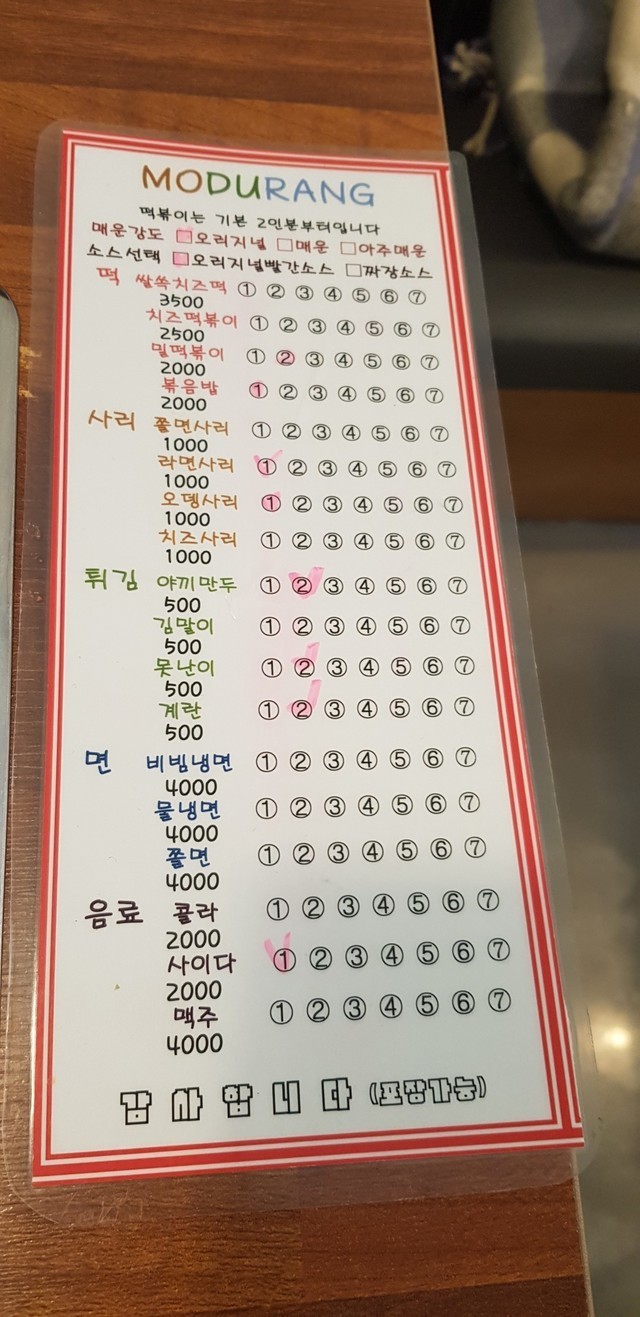 MODURANG
떡볶이는 기본 2인분부터입니다
매운강도 오리지널 매운 아주매운
소스선택 오리지널빨간소스 짜장소스
떡 쌀쏙치즈떡 ① ② ③ ④ ⑤ ⑥ ⑦
3500
치즈떡볶이 ① ② ③ ④ ⑤ ⑥ ⑦
2500
밀떡볶이 ① ② ③ ④ ⑤ ⑥ ⑦
2000
볶음밥 ① ② ③ ④ ⑤ ⑥ ⑦
2000
사리 쫄면사리 ① ② ③ ④ ⑤ ⑥ ⑦
1000
라면사리 ① ② ③ ④ ⑤ ⑥ ⑦
1000
오뎅사리 ① ② ③ ④ ⑤ ⑥ ⑦
1000
치즈사리 ① ② ③ ④ ⑤ ⑥ ⑦
1000
튀김 야끼만두 ① ② ③ ④ ⑤ ⑥ ⑦
500
김말이 ① ② ③ ④ ⑤ ⑥ ⑦
500
못난이 ① ② ③ ④ ⑤ ⑥ ⑦
500
계란 ① ② ③ ④ ⑤ ⑥ ⑦
500
면 비빔냉면 ① ② ③ ④ ⑤ ⑥ ⑦
4000
물냉면 ① ② ③ ④ ⑤ ⑥ ⑦
4000
쫄면 ① ② ③ ④ ⑤ ⑥ ⑦
4000
음료 콜라 ① ② ③ ④ ⑤ ⑥ ⑦
2000
사이다 ① ② ③ ④ ⑤ ⑥ ⑦
2000
맥주 ① ② ③ ④ ⑤ ⑥ ⑦
4000
감사합니다 (포장가능)